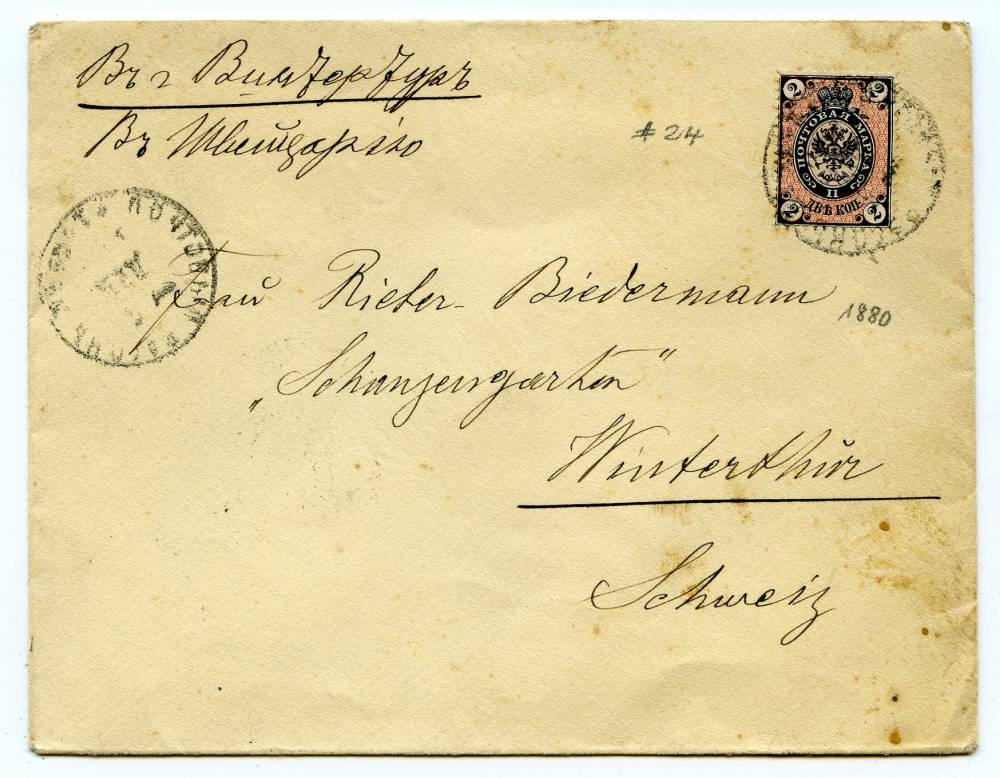 Въ г Винтертуръ
Въ Швейцарію
#24
2 2
ПОЧТОВАЯ МАРКА
II
ДВѢ КОП.
2 2
ПОЧТОВЫЙ ВАГОНЪ
Frau Rieter-Biedermann
1880
„Schanzengarten"
Winterthŭr
Schweiz